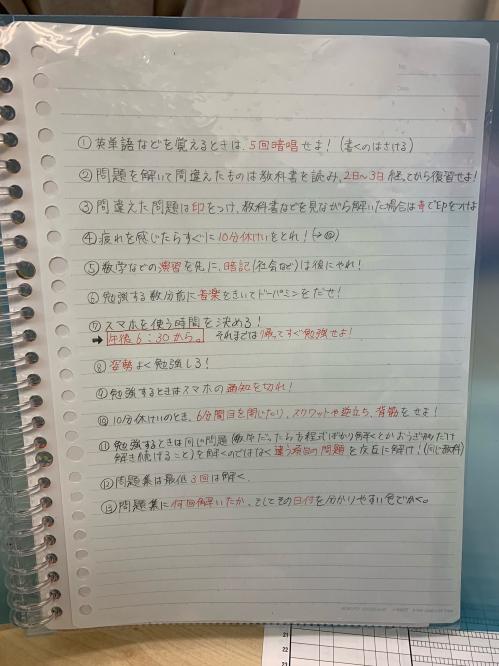 ①英単語などを覚えるときは、5回暗唱せよ！(書くのはさける)
②問題を解いて間違えたものは教科書を読み、2日〜3日経ってから復習せよ！
③間違えた問題は印をつけ、教科書などを見ながら解いた場合は青で印をつけよ
④疲れを感じたらすぐに10分休けいをとれ！(→⑩)
⑤数学などの演習を先に、暗記(社会など)は後にやれ！
⑥勉強する数分前に音楽をきいてドーパミンをだせ！
⑦スマホを使う時間を決める！
➡午後6:30から。それまでは帰ってすぐ勉強せよ！
⑧姿勢よく勉強しろ！
⑨勉強するときはスマホの通知を切れ！
⑩10分休けいのとき、6分間目を閉じたり、スクワットや逆立ち、背筋をせよ！
⑪勉強するときは同じ問題(数学だったら方程式ばかり解くとかおうぎ形だけ
解き続けること)を解くのではなく違う項目の問題を交互に解け！(同じ教科)
⑫問題集は最低3回は解く。
⑬問題集に何回解いたか、そしてその日付を分かりやすい色でかく。
21
22